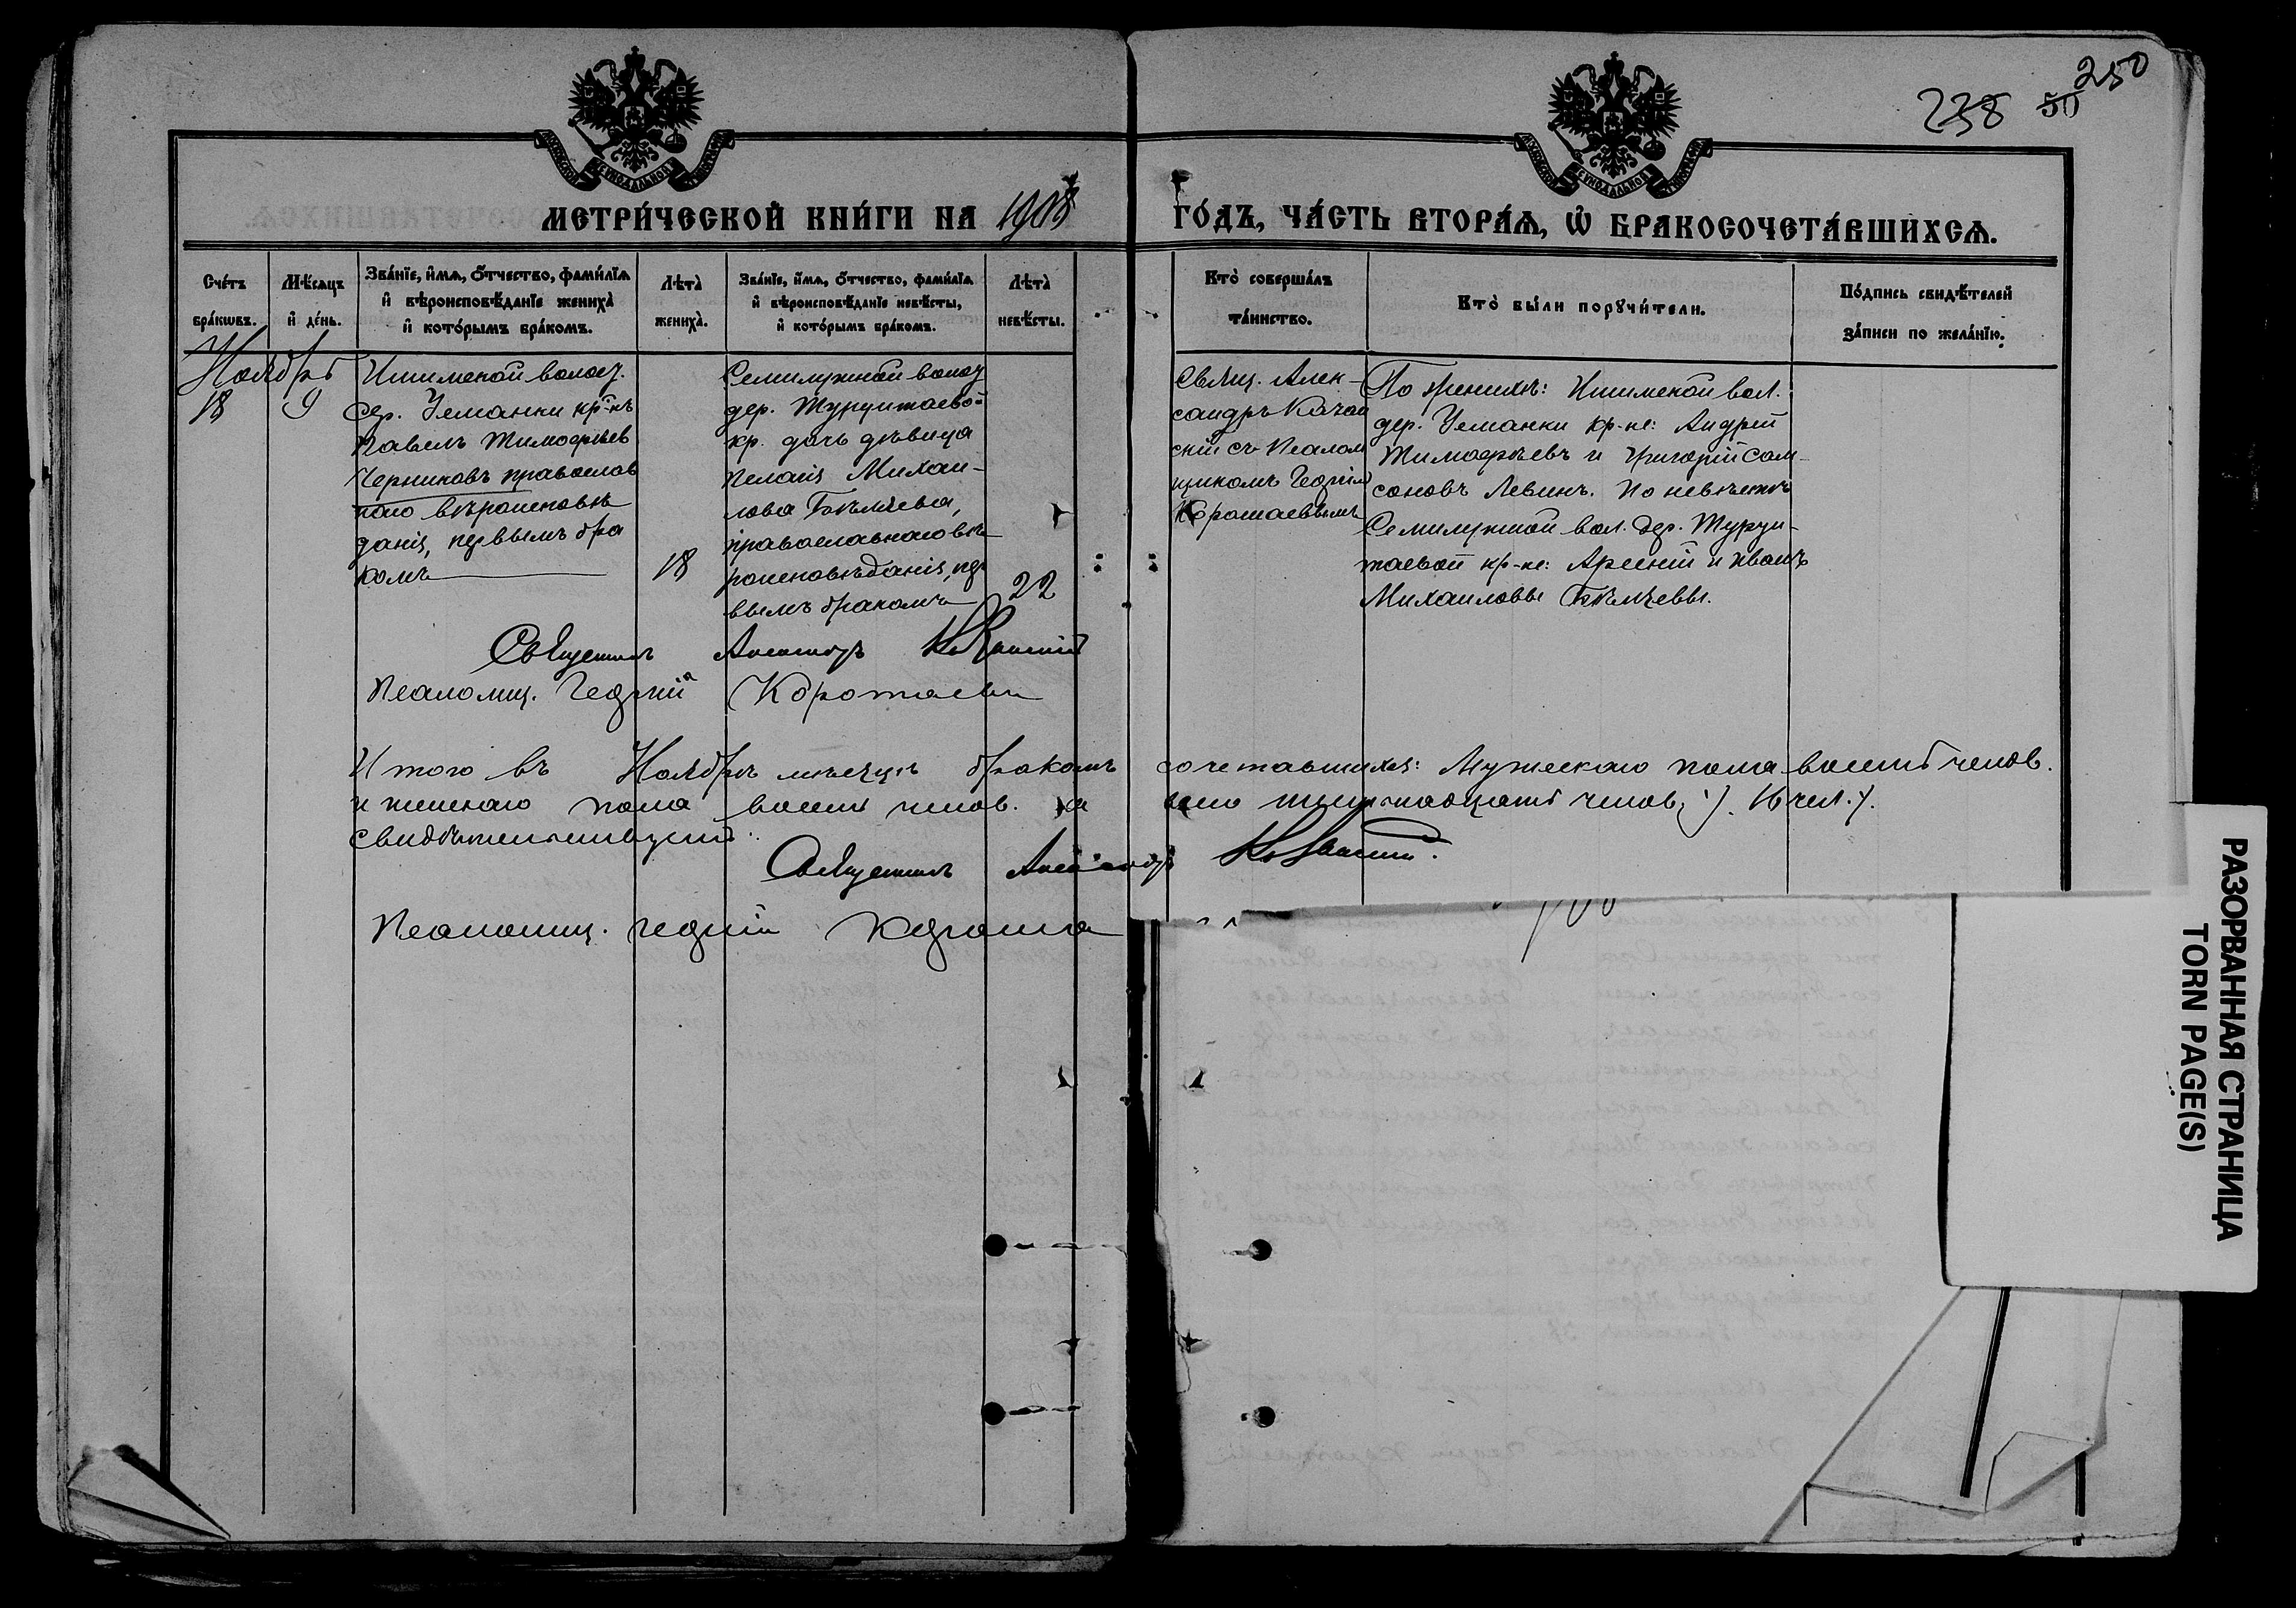 238 50 250
МЕТРИ́ЧЕСКОЙ КНИ́ГИ НА 1908 ГО́ДЪ, ЧА́СТЬ ВТОРА́Ѧ, Ѡ҆ БРАКОСОЧЕТА́ВШИХСѦ.
Сче́тъ бра́кѡвъ.
Мѣ́сяцъ и҆ де́нь.
Зва́нїе, и҆́мѧ, ѻ҆́тчество, фами́лїѧ
и҆ вѣроисповѣ́данїе жениха̀
и҆ кото́рымъ бра́комъ.
Лѣта̀ жениха̀.
Зва́нїе, и҆́мѧ, ѻ҆́тчество, фами́лїѧ
и҆ вѣроисповѣ́данїе невѣ́сты,
и҆ кото́рымъ бра́комъ.
Лѣта̀ невѣ́сты.
Кто̀ соверша́лъ та́инство.
Кто̀ бы́ли порꙋчи́тели.
По́дпись свидѣ́телей
за́писи по жела́нїю.
Ноябрь
18 9
Ишимской волост.
дер. Уманки кр-нъ
Павелъ Тимофѣев
Черниковъ православ
наго вѣроисповѣ
данія, первымъ бра
комъ
18
Семилужной волос
дер. Турунтаевой
кр. дочь дѣвица
Пелагія Михаи-
лова Бѣляева,
православнаго вѣ-
роисповѣданія, пер
вымъ бракомъ
22
Свящ. Алек-
сандръ
скій съ Псалом
щикомъ Георгіем
Коротаевымъ
По женихѣ: Ишимской вол.
дер. Уманки кр-не: Андрей
Тимофѣевъ и Григорій Сам-
соновъ Левинъ. По невѣстѣ
Семилужной вол. дер. Турун-
таевой кр-не: Арсеній и Иванъ
Михаиловы Бѣляевы.
Священникъ Александръ
Псаломщ. Георгій Коротаевъ
Итого въ Ноябрѣ мѣсяцѣ бракомъ сочетавшихся: Мужескаго пола восемь челов.
и женскаго пола восемь челов. а всего шестнадцать челов. 16 чел.
свидѣтельствуютъ:
Священникъ Александръ
Псаломщ. Георгій Корота
РАЗОРВАННАЯ СТРАНИЦА
TORN PAGE(S)